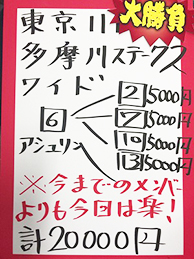 東京11
大勝負
多摩川ステークス
ワイド
2 5000円
6 7 5000円
アシュリン 10 5000円
13 5000円
※今までのメンバー
よりも今回は楽!
計20000円